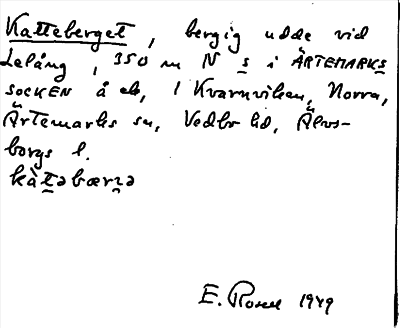 Katteberget, bergig udde vid
Lelång, 350 m N s i ÄRTEMARKS
SOCKEN å eb, i Kvarnviken, Norra,
Ärtemarks sn, Vedbo hd, Älvs-
borgs l.
kàtəbærɲə
E. Rosell 1949